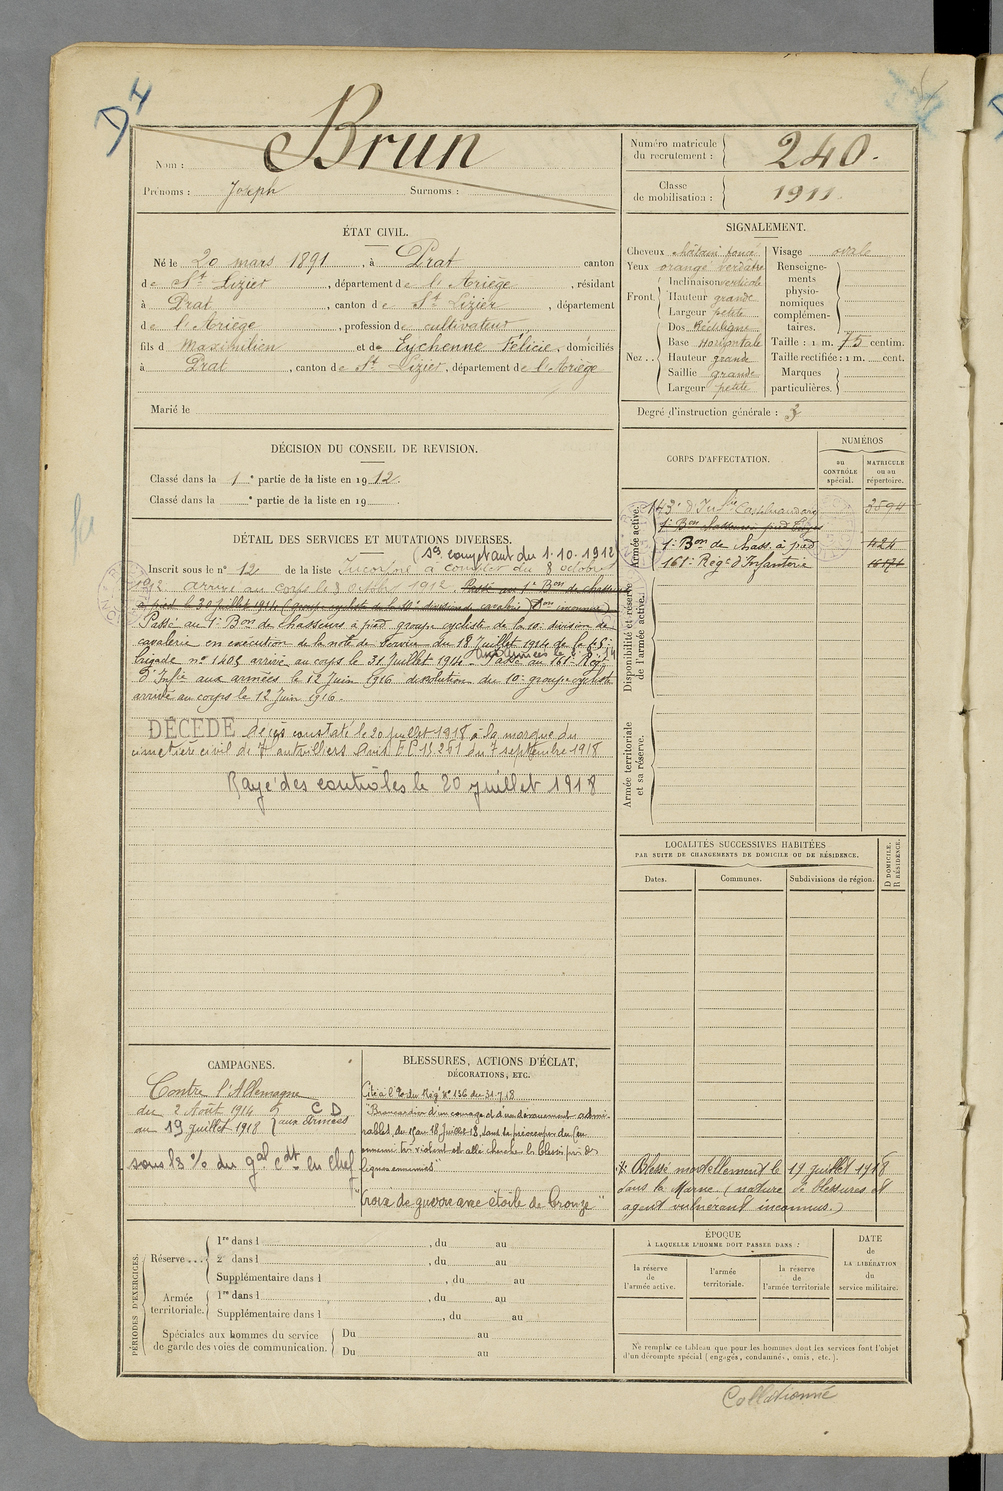 D4
Nom : Brun
Prénoms : Joseph Surnoms :
Numéro matricule du recrutement : 240.
Classe de mobilisation : 1911
ÉTAT CIVIL.
Né le 20 mars 1891, à Prat canton
de St Lizier, département de l'Ariège, résidant
à Prat, canton de St Lizier, département
de l'Ariège, profession de cultivateur
fils de Maximilien et de Eychenne Félicie, domiciliés
à Prat, canton de St Lizier, département de l'Ariège
Marié le
SIGNALEMENT.
Cheveux châtain foncé
Yeux orangé verdâtre
Front. Inclinaison verticale
Hauteur grande
Largeur petite
Nez.. Dos Rectiligne
Base Horizontale
Hauteur grande
Saillie grande
Largeur petite
Visage ovale
Renseignements physionomiques complémentaires.
Taille : 1 m. 75 centim.
Taille rectifiée : 1 m. cent.
Marques particulières.
Degré d'instruction générale : 3
DÉCISION DU CONSEIL DE REVISION.
Classé dans la 1e partie de la liste en 1912.
Classé dans la e partie de la liste en 19
CORPS D'AFFECTATION.
NUMÉROS
au CONTRÔLE spécial.
MATRICULE ou au répertoire.
Armée active.
143e d'Infie Castelnaudary 3594
1er Bon de chass. à pied 424
161e Régt d'Infanterie
Disponibilité et réserve de l'armée active.
Armée territoriale et sa réserve.
DÉTAIL DES SERVICES ET MUTATIONS DIVERSES.
(Se comptant du 1.10.1912
Inscrit sous le n° 12 de la liste Incorporé à compter du 8 octobre
1912 arrivé au corps le 8 octobre 1912. Passé au 1er Bon de chass.
à pied le 30 juillet 1914 (groupe cycliste de la division de cavalerie) (Bon inconnu)
Passé au 1er Bon de Chasseurs à pied groupe cycliste de la 10e division de
cavalerie en exécution de la note de Service du 18 Juillet 1914 de la
brigade n° 140 arrivé au corps le 31 Juillet 1914. Aux armées le Passé au 161e Régt
d'Infie aux armées le 12 Juin 1916 dissolution du 10e groupe cycliste
arrivé au corps le 12 Juin 1916.
DÉCÉDÉ Décès constaté le 20 juillet 1918 à la morgue du
cimetière civil de Avis du 7 septembre 1918
Rayé des contrôles le 20 juillet 1918
LOCALITÉS SUCCESSIVES HABITÉES
PAR SUITE DE CHANGEMENTS DE DOMICILE OU DE RÉSIDENCE.
Dates. Communes. Subdivisions de région. D DOMICILE. R RÉSIDENCE.
CAMPAGNES.
Contre l'Allemagne
du 2 Août 1914 CD
au 19 Juillet 1918 aux armées
sous le % du gal cdt en chef
BLESSURES, ACTIONS D'ÉCLAT,
DÉCORATIONS, ETC.
Cité à l'O. du Régt N° 136 du 31.7.18
"Brancardier d'un courage et d'un dévouement admi-
rables, du 15 au 18 Juillet 18, sans se préoccuper du feu
ennemi très violent est allé chercher les blessés près des
lignes ennemies"
"Croix de guerre avec étoile de bronze"
Blessé mortellement le 19 juillet 1918
dans la Marne (nature de blessures et
agent vulnérant inconnus.)
PÉRIODES D'EXERCICES.
Réserve....
1re dans l , du au
2e dans l , du au
Supplémentaire dans l , du au
Armée territoriale.
1re dans l , du au
Supplémentaire dans l , du au
Spéciales aux hommes du service de garde des voies de communication.
Du au
Du au
ÉPOQUE
À LAQUELLE L'HOMME DOIT PASSER DANS :
la réserve de l'armée active.
l'armée territoriale.
la réserve de l'armée territoriale
DATE de LA LIBÉRATION du service militaire.
Ne remplir ce tableau que pour les hommes dont les services font l'objet
d'un décompte spécial (engagés, condamnés, omis, etc.).
Collationné